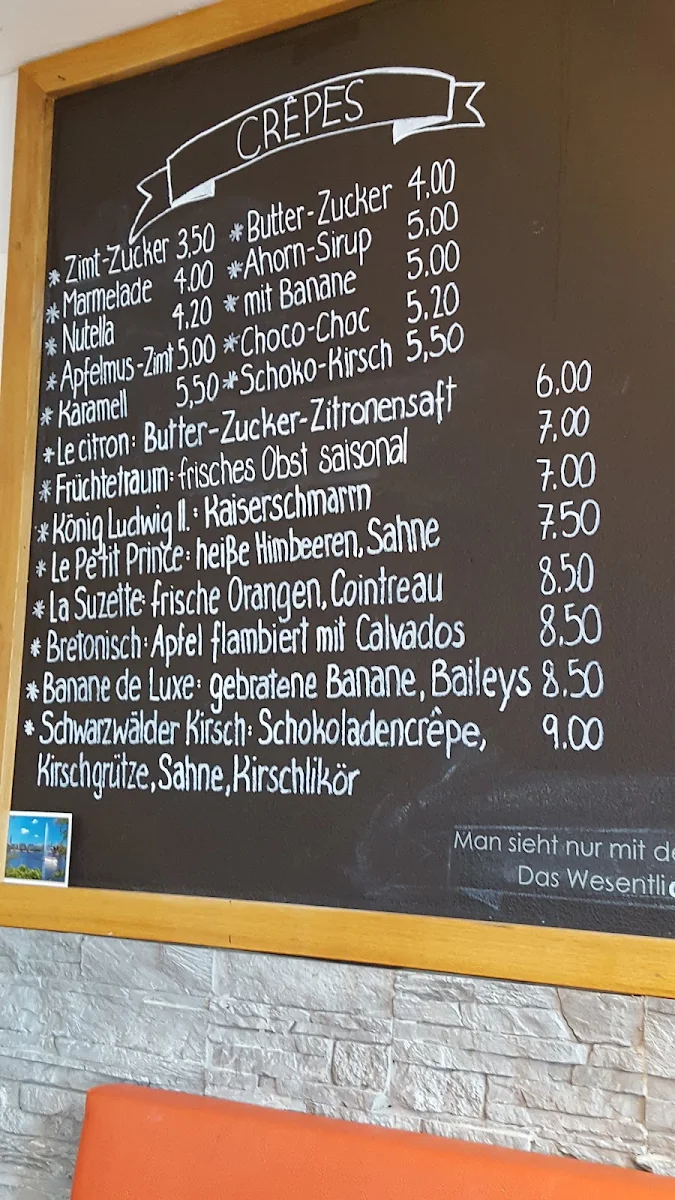 CRÊPES
* Zimt-Zucker 3.50 * Butter-Zucker 4.00
* Marmelade 4.00 * Ahorn-Sirup 5.00
* Nutella 4.20 * mit Banane 5.00
* Apfelmus-Zimt 5.00 * Choco-Choc 5.20
* Karamell 5,50 * Schoko-Kirsch 5,50
* Le citron: Butter-Zucker-Zitronensaft 6.00
* Früchtetraum: frisches Obst saisonal 7.00
* König Ludwig II.: Kaiserschmarrn 7.00
* Le Petit Prince: heiße Himbeeren, Sahne 7.50
* La Suzette: frische Orangen, Cointreau 8.50
* Bretonisch: Apfel flambiert mit Calvados 8,50
* Banane de Luxe: gebratene Banane, Baileys 8.50
* Schwarzwälder Kirsch: Schokoladencrêpe, 9.00
Kirschgrütze, Sahne, Kirschlikör
Man sieht nur mit de
Das Wesentli